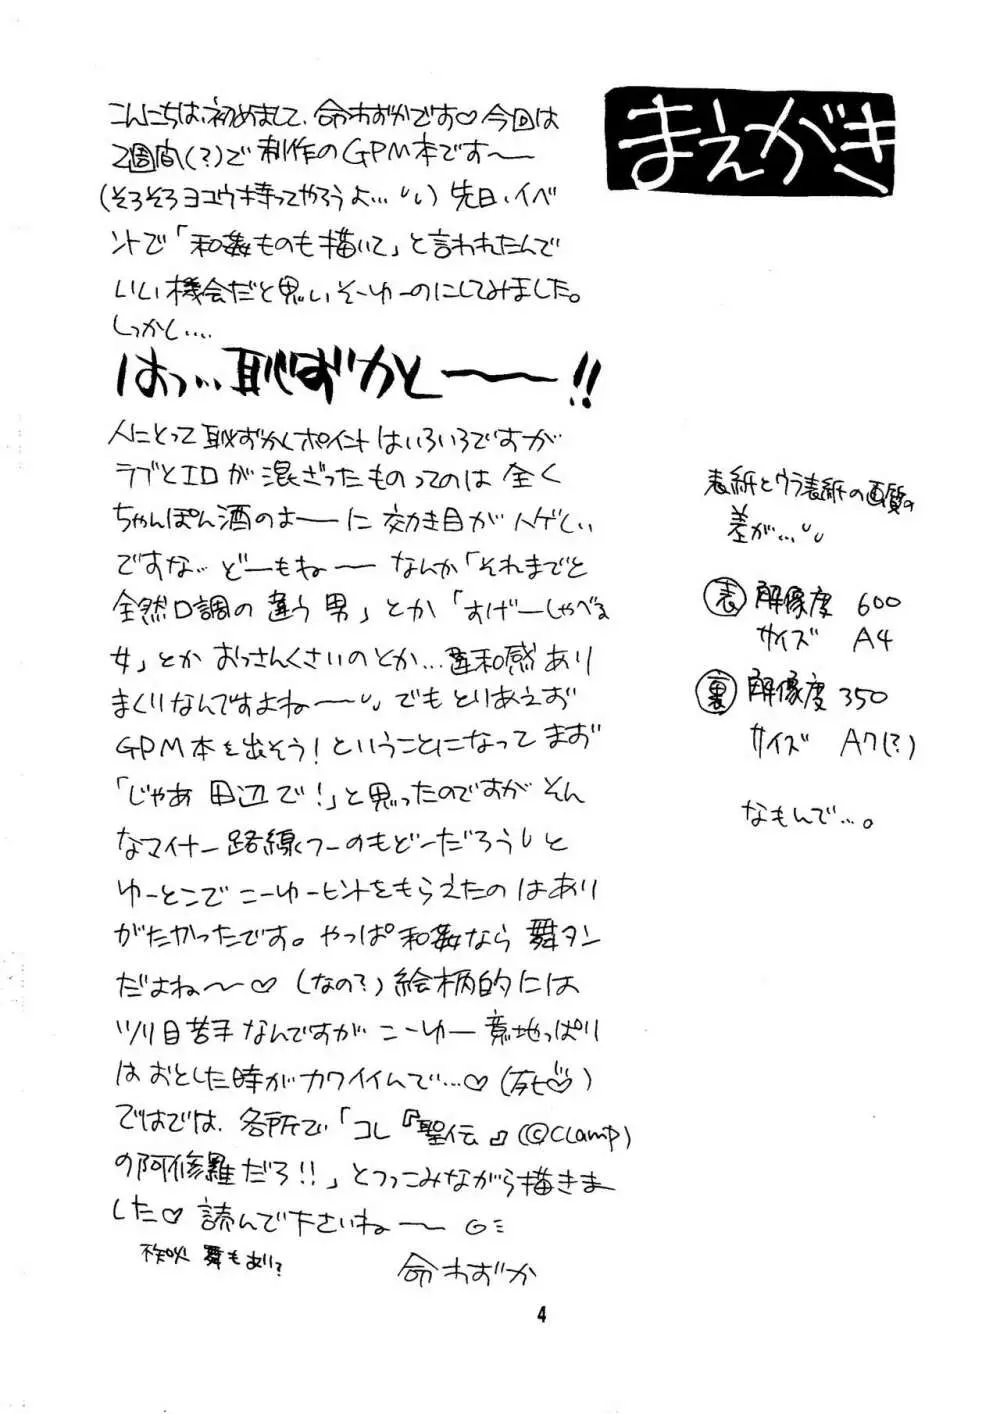 まえがき
こんにちは、初めまして、命わずかです♡今回は
2週間(?)で制作のGPM本です〜〜
(そろそろヨユウ持ってやろうよ…) 先日、イベ
ントで「和姦ものも描いて」と言われたんで
いい機会だと思いそーゆーのにしてみました。
しっかし‥‥
はっ…恥ずかしーー!!
人にとって恥ずかしポイントはいろいろですが
ラブとエロが混ざったものってのは全く
ちゃんぽん酒のよーに効き目がハゲしい
ですな… どーもねー なんか「それまでと
全然口調の違う男」とか「すげーしゃべる
女」とかおっさんくさいのとか…違和感あり
まくりなんですよね〜〜 でもとりあえず
GPM本を出そう!ということになってまず
「じゃあ田辺で!」と思ったのですがそん
なマイナー路線つーのもどーだろう と
ゆーとこでこーゆーヒントをもらえたのはあり
がたかったです。やっぱ和姦なら舞タン
だよね〜〜♡ (なの?)絵柄的には
ツリ目苦手なんですがこーゆー意地っぱり
はおとした時がカワイイんで…♡(死♡)
ではでは、各所で「コレ『聖伝』(©Clamp)
の阿修羅だろ!!」とつっこみながら描きま
した♡読んで下さいね〜〜
不知火 舞もあり?
命わずか
表紙とウラ表紙の画質の
差が…
表 解像度 600
サイズ A4
裏 解像度 350
サイズ A7(?)
なもんで…。
4